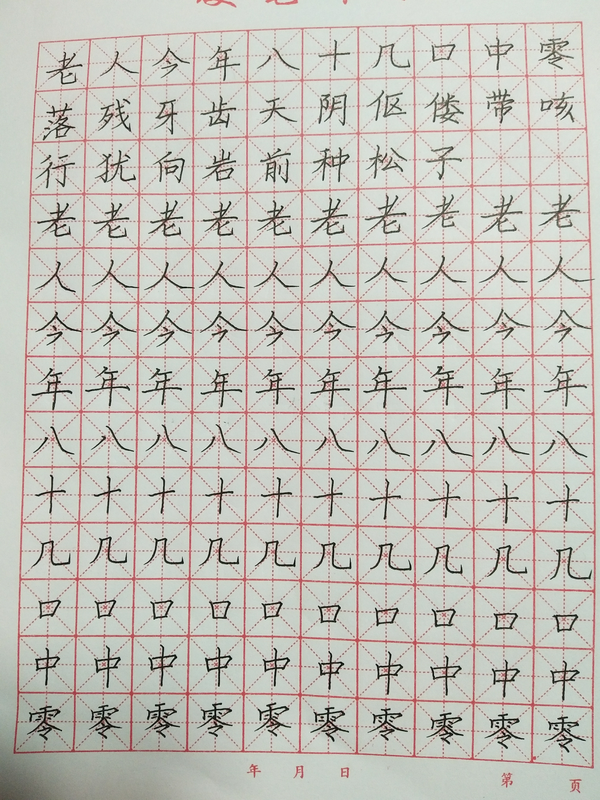 老人今年八十几口中零
落残牙齿天阴伛偻带咳
行犹向岩前种松子
老老老老老老老老老老
人人人人人人人人人人
今今今今今今今今今今
年年年年年年年年年年
八八八八八八八八八八
十十十十十十十十十十
几几几几几几几几几几
口口口口口口口口口口
中中中中中中中中中中
零零零零零零零零零零
年 月 日 第 页